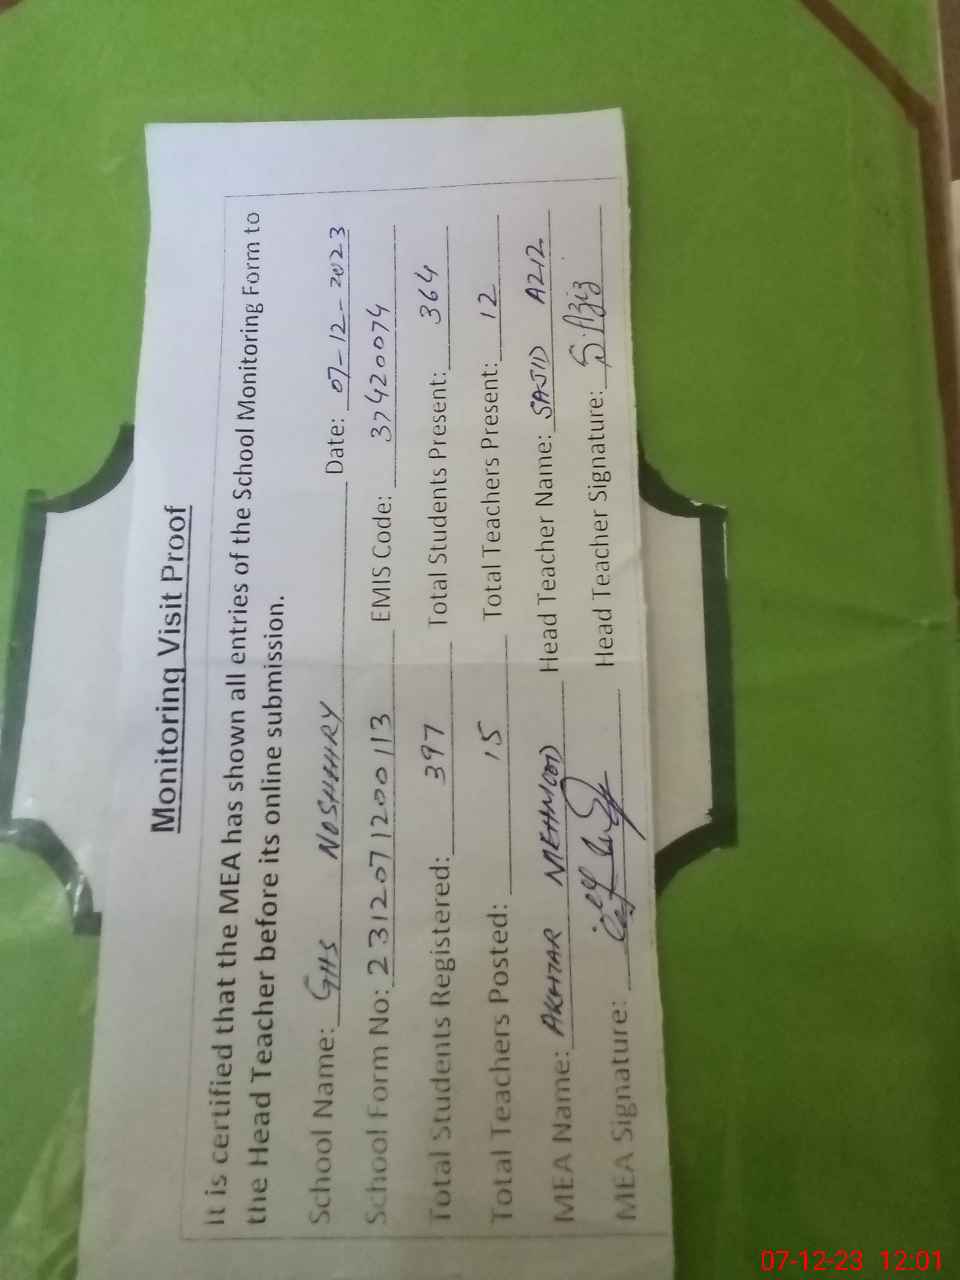 Monitoring Visit Proof
It is certified that the MEA has shown all entries of the School Monitoring Form to
the Head Teacher before its online submission.
School Name: GHS NOSHHRY Date: 07-12-2023
School Form No: 2312071200113 EMIS Code: 37420074
Total Students Registered: 397 Total Students Present: 364
Total Teachers Posted: 15 Total Teachers Present: 12
MEA Name: AKHTAR MEHMOOD Head Teacher Name: SAJID AZIZ
MEA Signature: Head Teacher Signature: S.Aziz
07-12-23 12:01